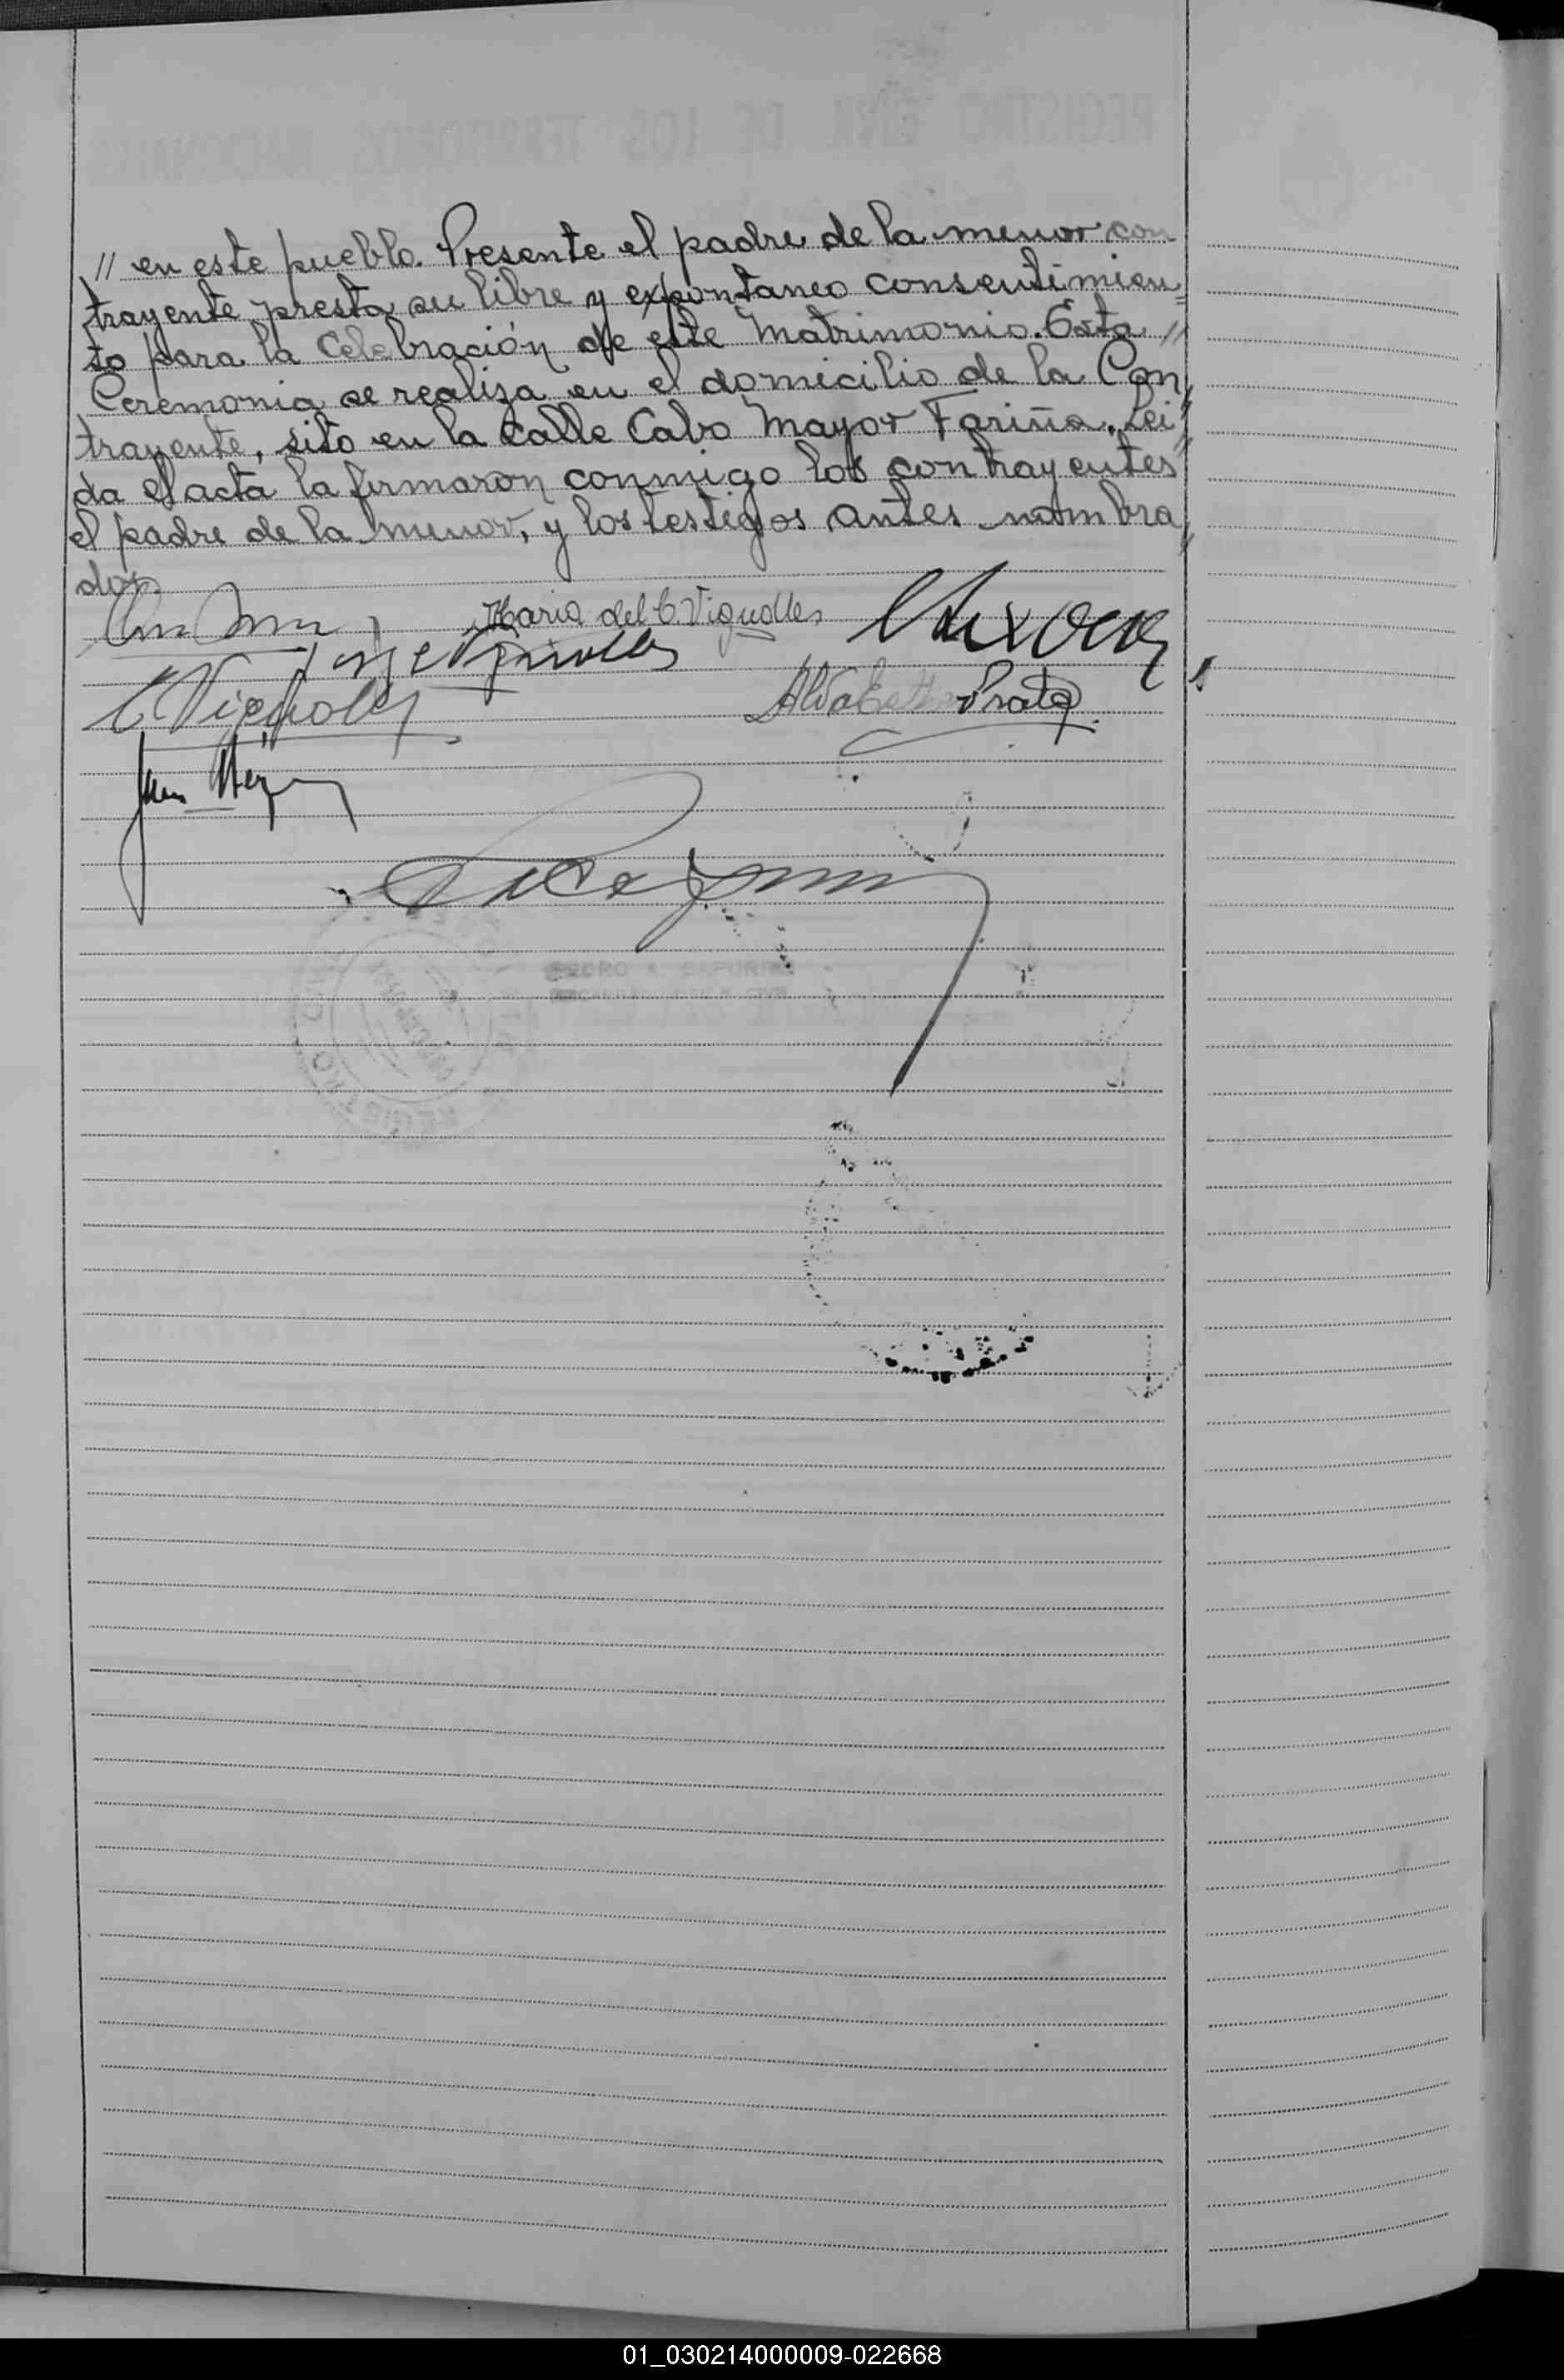 // en este pueblo. Presente el padre de la menor con
trayente presta su libre y expontaneo consentimien=
to para la Celebración de este Matrimonio. Esta //
Ceremonia se realiza en el domicilio de la Con
trayente, sito en la calle Cabo Mayor Fariña. Lei"
da el acta la firmaron conmigo los contrayentes
el padre de la menor, y los testigos antes nombra"
dos.
Maria del C Vignolles
Jorge Vignolles
C Vignolles
Alda Esther Prata
Juan
PEDRO A
REGISTRO CIVIL
01_030214000009-022668